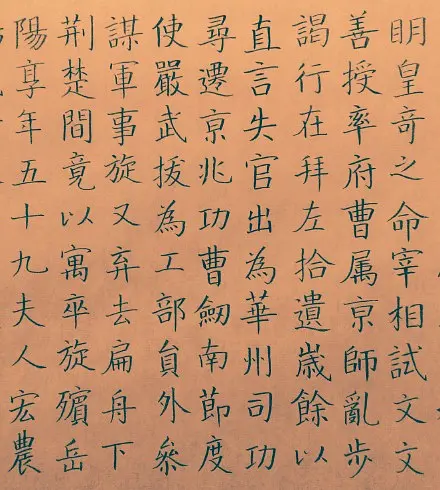 明皇奇之命宰相試文文
善授率府曹属京師亂步
謁行在拜左拾遺歲餘以
直言失官出為華州司功
尋遷京兆功曹劒南節度
使嚴武拔為工部負外叅
謀軍事旋又弃去扁舟下
荆楚間竟以寓卒旋殯岳
陽享年五十九夫人宏農